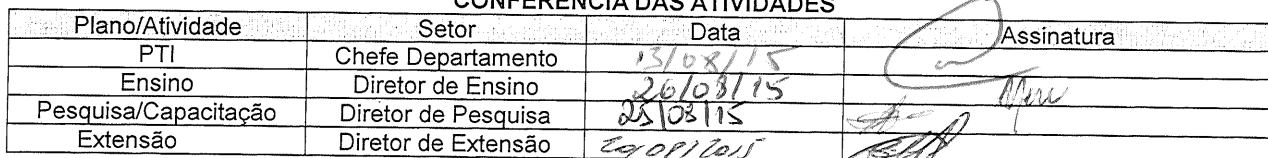 CONFERÊNCIA DAS ATIVIDADES
Plano/Atividade Setor Data Assinatura
PTI Chefe Departamento 13/08/15
Ensino Diretor de Ensino 26/08/15
Pesquisa/Capacitação Diretor de Pesquisa 25/08/15
Extensão Diretor de Extensão